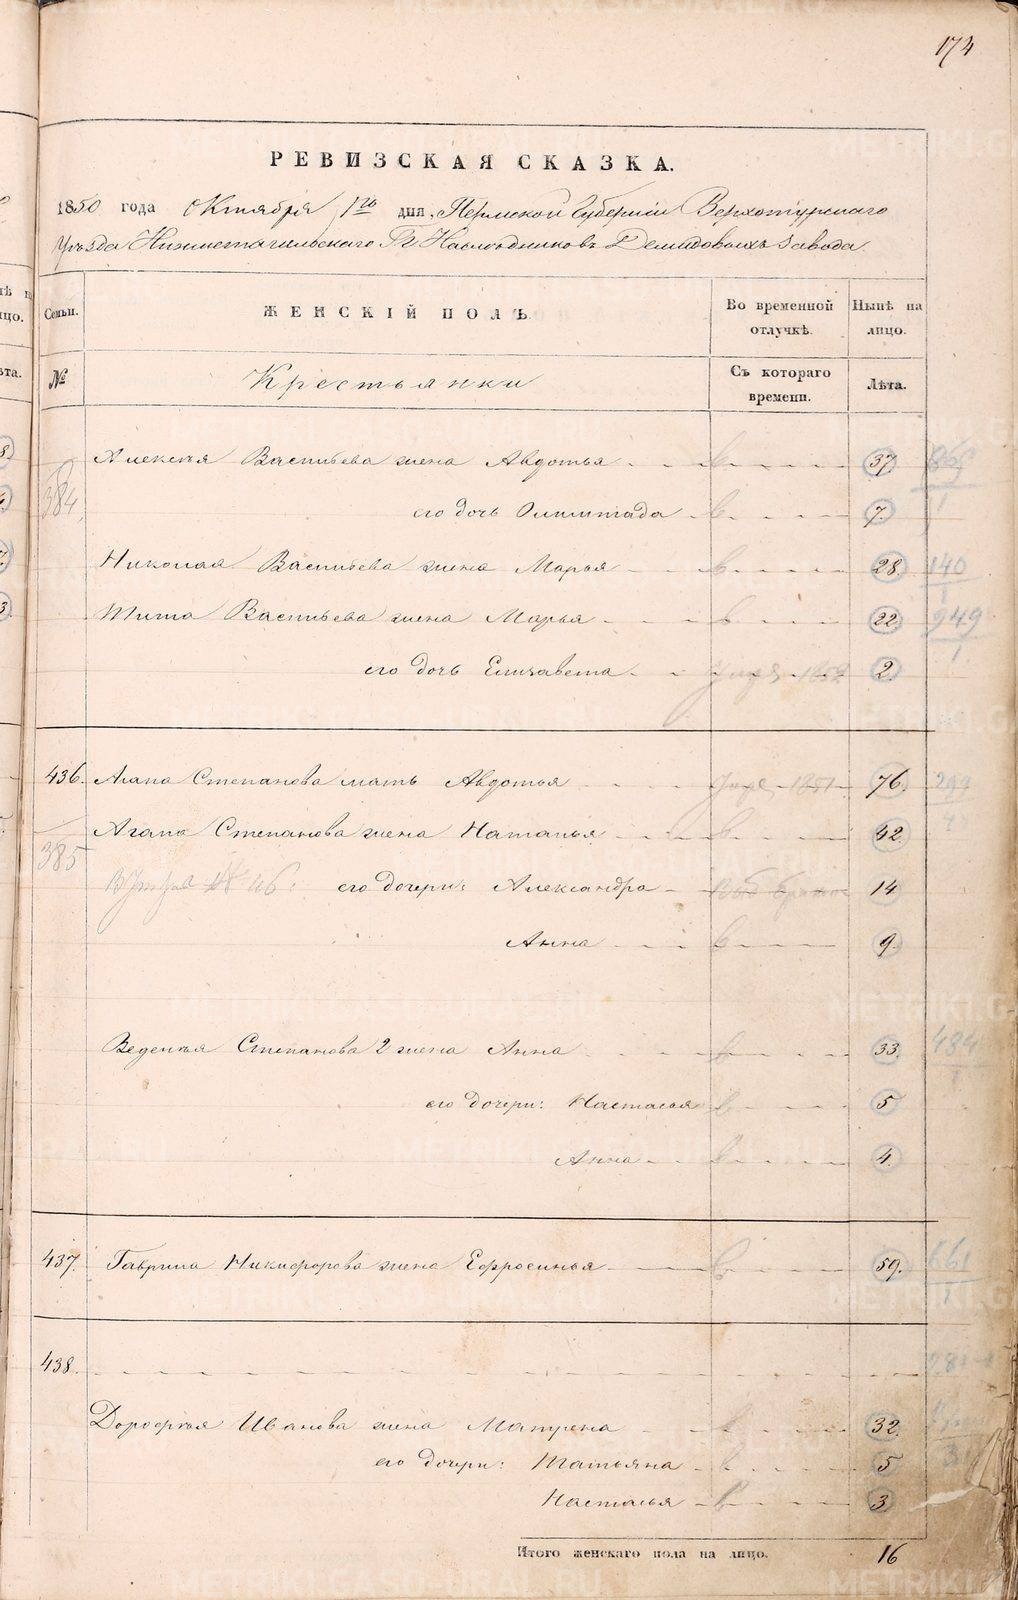 174
РЕВИЗСКАЯ СКАЗКА.
1850 года Октября 1го дня, Пермской Губерніи Верхотурскаго
Уѣзда Нижнетагильскаго Гг. Наслѣдниковъ Демидовыхъ завода.
Семьи. ЖЕНСКІЙ ПОЛЪ Во временной отлучкѣ. Нынѣ на лицо.
№ Крестьянки Съ котораго времени. Лѣта.
Алексѣя Васильева жена Авдотья 37. 865
384 его дочь Олимпіада 7. 1
Николая Васильева жена Марья 28. 140
Тита Васильева жена Марья 22. 949
его дочь Елизавета 2. 1
436. Агапа Степанова мать Авдотья 1851 76.
Агапа Степанова жена Наталья 42.
385 его дочери: Александра 14
Анна 9.
Веденѣя Степанова 2 жена Анна 33. 484
его дочери: Настасья 5
Анна 4.
437. Гаврила Никифорова жена Ефросинья 59. 661
438.
Дорофѣя Иванова жена Матрена 32.
его дочери: Татьяна 5
Настасья 3
Итого женскаго пола на лицо. 16
METRIKI.GASO-URAL.RU